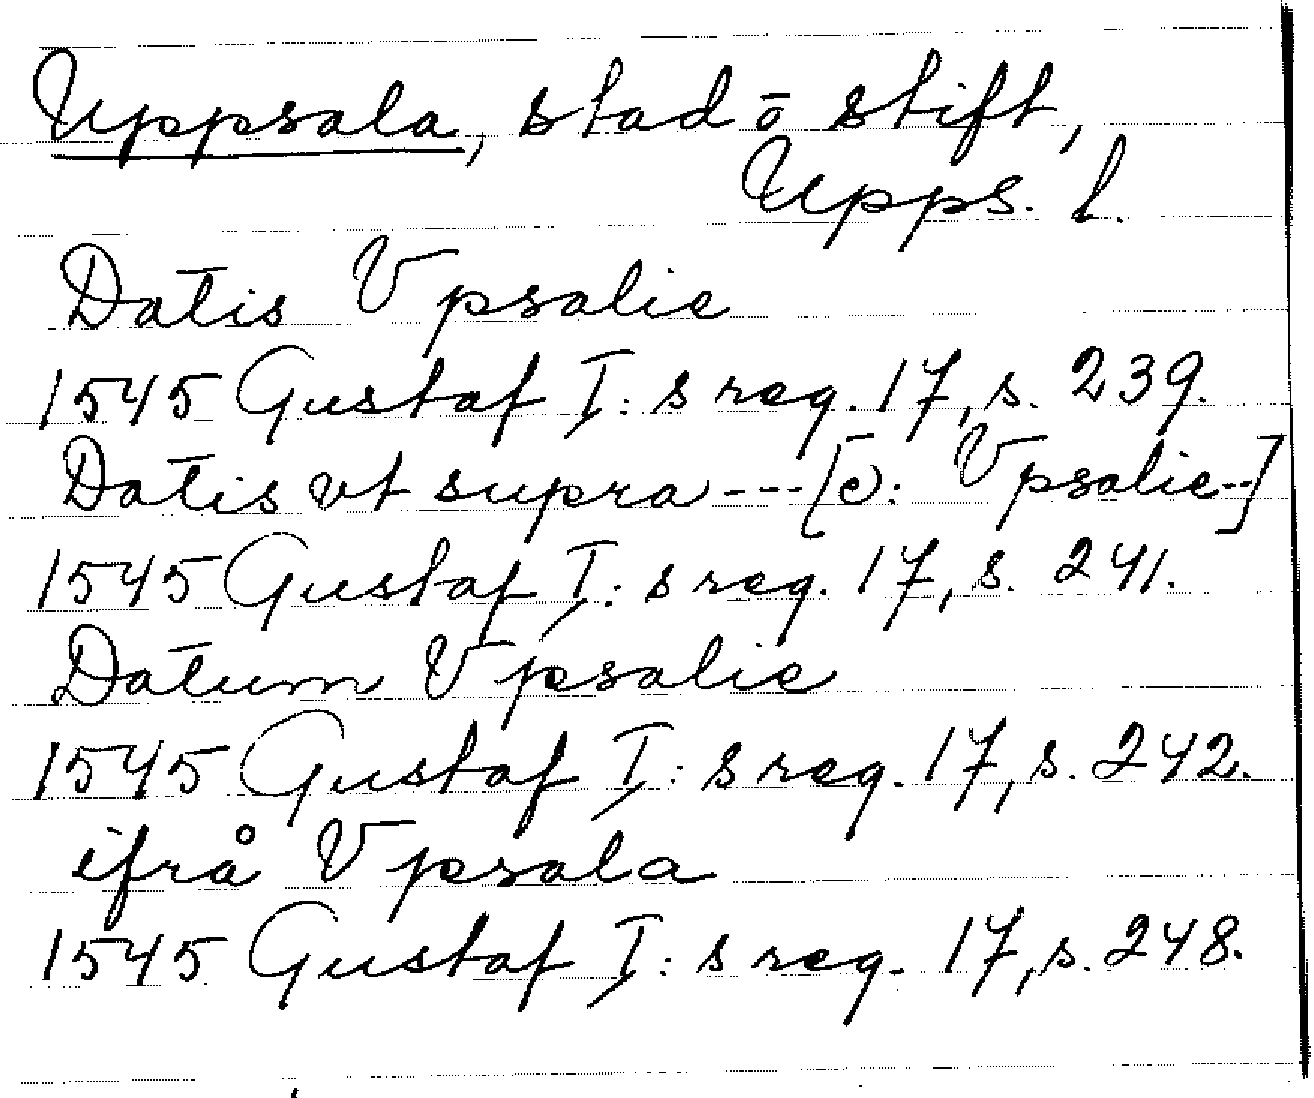 Uppsala, stad o stift,
Upps. l.
Datis Vpsalie
1545 Gustaf I: s reg. 17, s. 239.
Datis vt supra --- [ɔ: Vpsalie--]
1545 Gustaf I: s reg. 17, s. 241.
Datum Vpsalie
1545 Gustaf I: s reg. 17, s. 242.
ifrå Vpsala
1545 Gustaf I: s reg. 17, s. 248.